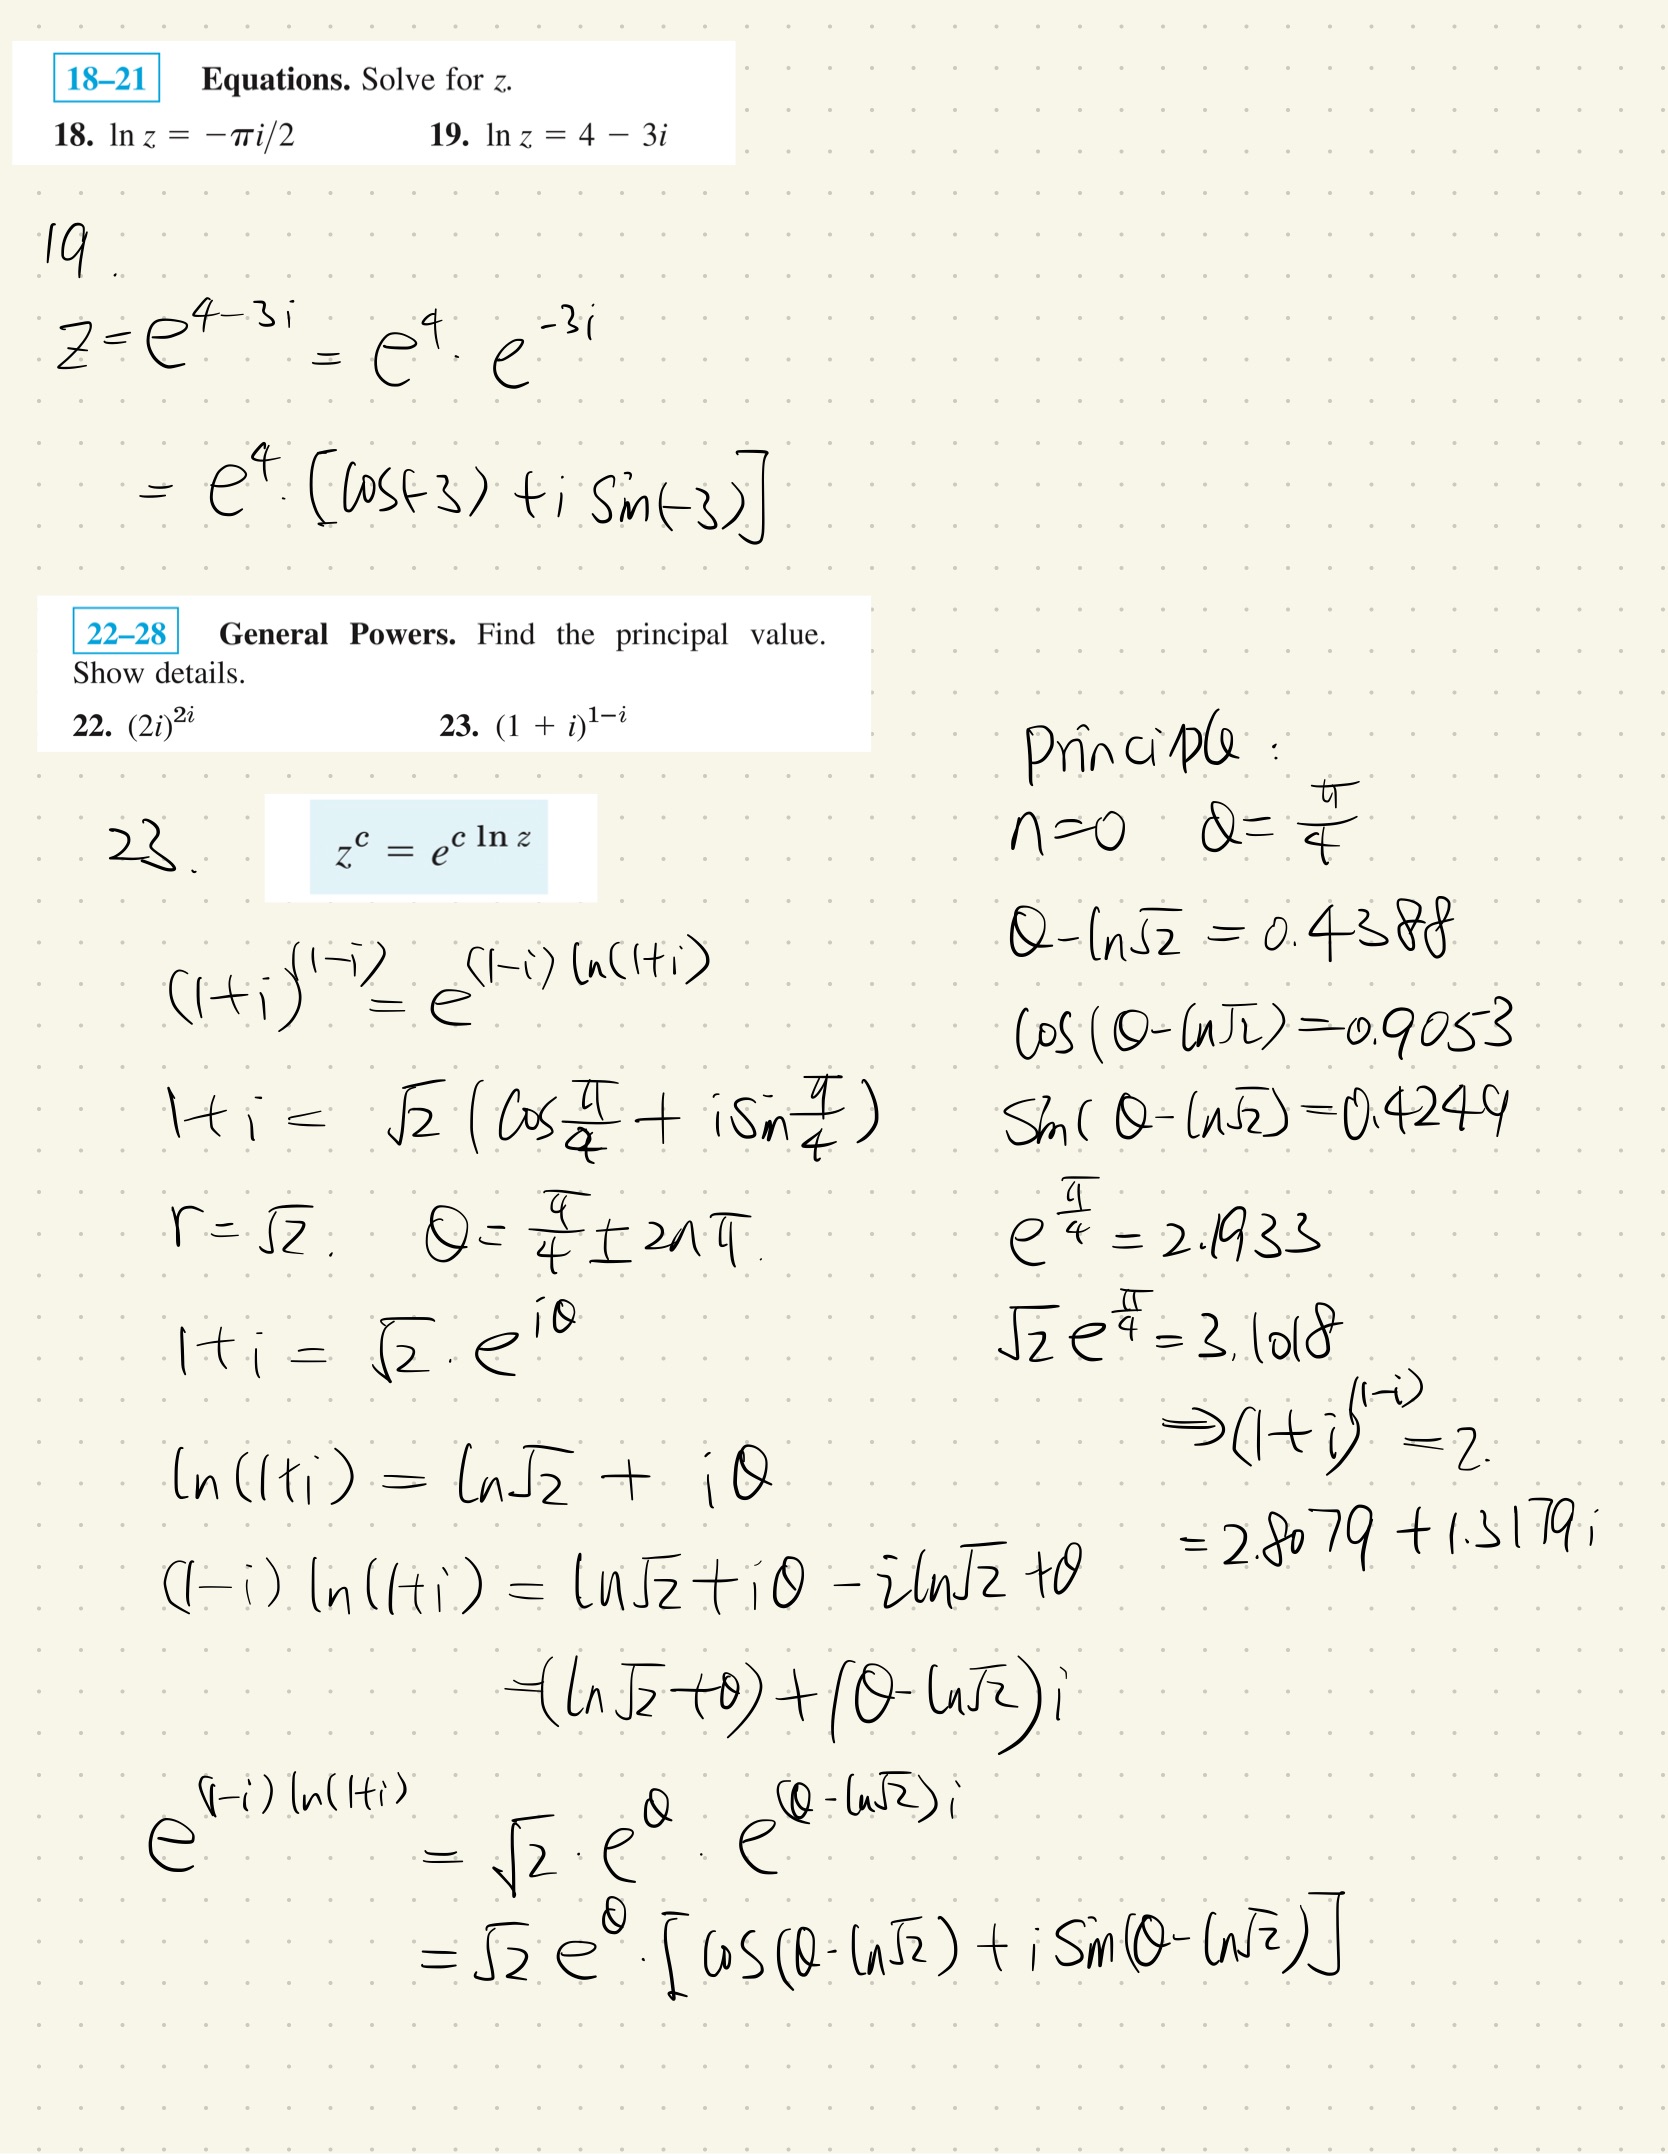 18–21 Equations. Solve for z.
18. ln z = −πi/2 19. ln z = 4 − 3i
19.
z = e^{4-3i} = e^4 · e^{-3i}
= e^4 · [cos(-3) + i sin(-3)]
22–28 General Powers. Find the principal value.
Show details.
22. (2i)^{2i} 23. (1 + i)^{1−i}
23. z^c = e^{c ln z}
(1+i)^{(1-i)} = e^{(1-i) ln(1+i)}
1+i = √2 (cos π/4 + i sin π/4)
r = √2. θ = π/4 ± 2nπ.
1+i = √2 · e^{iθ}
ln(1+i) = ln√2 + iθ
(1-i) ln(1+i) = ln√2 + iθ - i ln√2 + θ
= (ln√2 + θ) + (θ - ln√2) i
e^{(1-i) ln(1+i)} = √2 · e^θ · e^{(θ - ln√2) i}
= √2 e^θ · [cos(θ - ln√2) + i sin(θ - ln√2)]
Principle :
n=0 θ = π/4
θ - ln√2 = 0.4388
cos(θ - ln√2) = 0.9053
sin(θ - ln√2) = 0.4249
e^{π/4} = 2.1933
√2 e^{π/4} = 3.1018
⇒ (1+i)^{(1-i)} = 2.
= 2.8079 + 1.3179 i